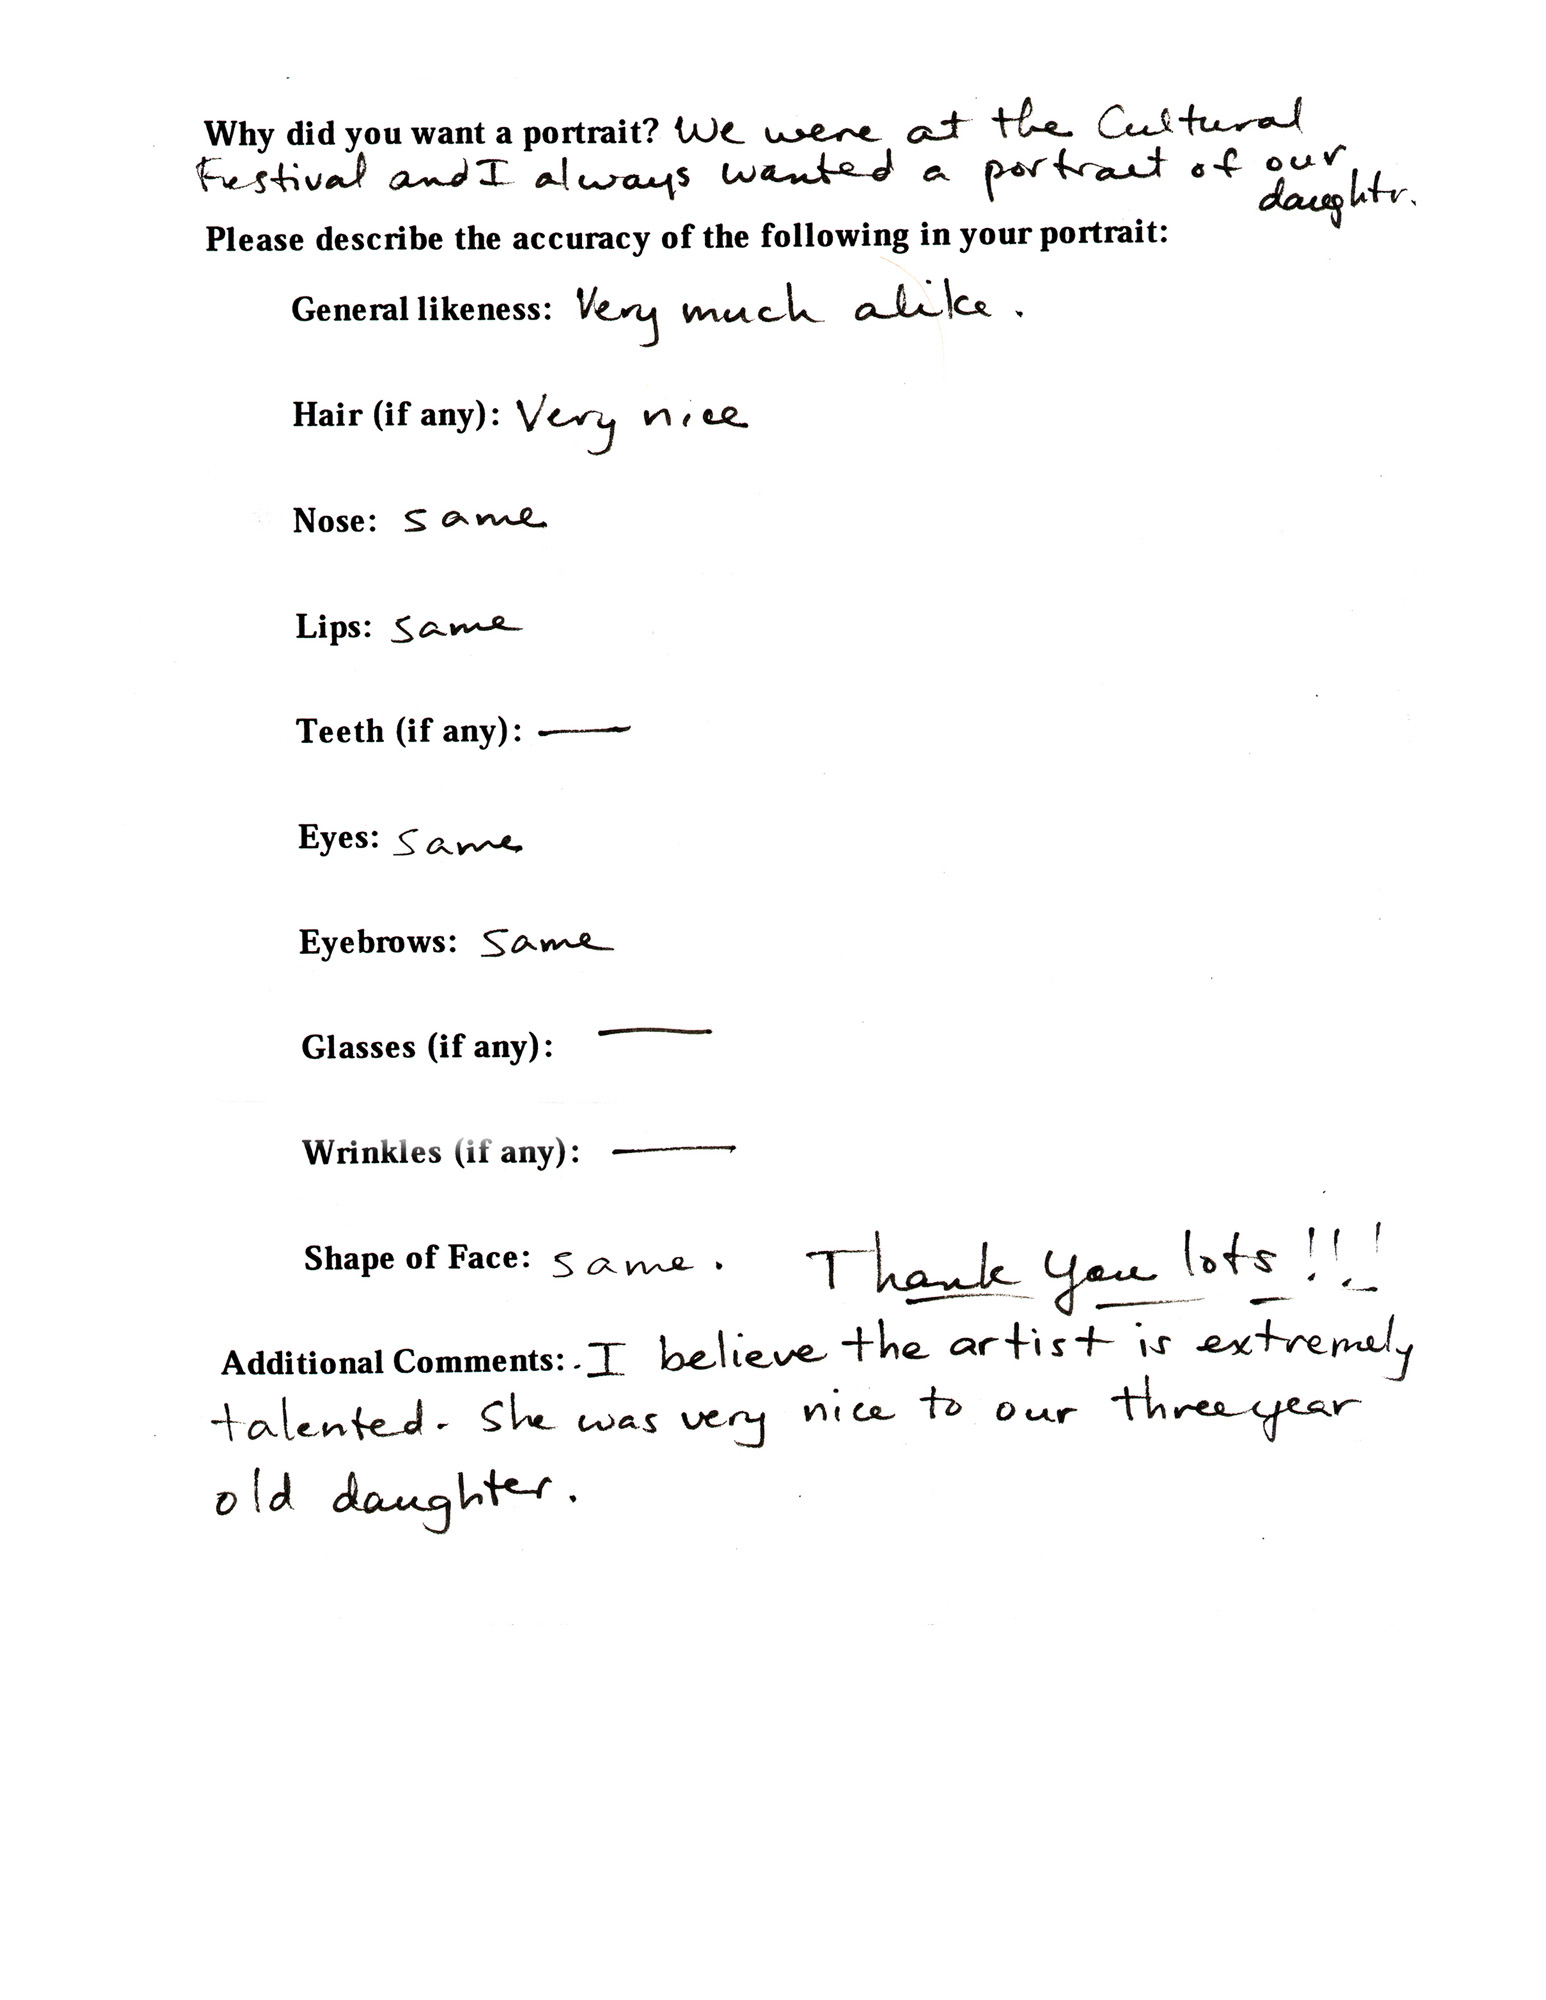 Why did you want a portrait? We were at the Cultural
Festival and I always wanted a portrait of our
daughtr.
Please describe the accuracy of the following in your portrait:
General likeness: Very much alike.
Hair (if any): Very nice
Nose: same
Lips: same
Teeth (if any): —
Eyes: same
Eyebrows: same
Glasses (if any): —
Wrinkles (if any): —
Shape of Face: same. Thank you lots!!!
Additional Comments: . I believe the artist is extremely
talented. She was very nice to our three year
old daughter.